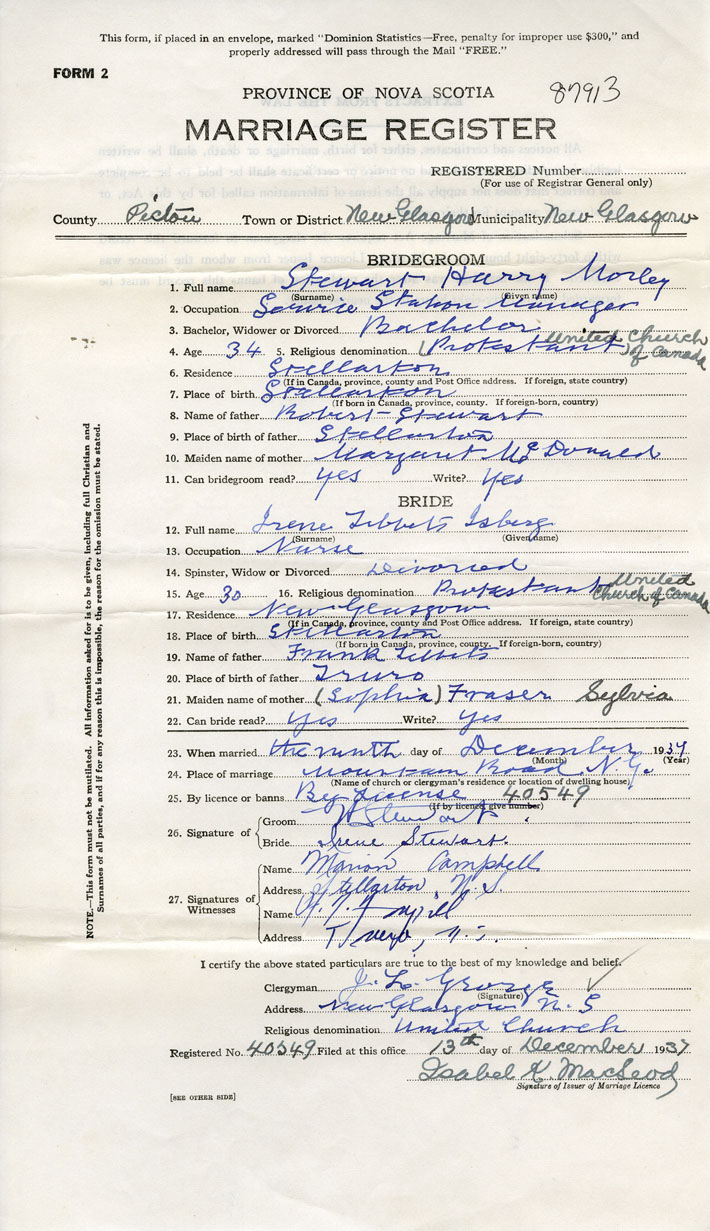 This form, if placed in an envelope, marked "Dominion Statistics—Free, penalty for improper use $300," and
properly addressed will pass through the Mail "FREE."
FORM 2
PROVINCE OF NOVA SCOTIA 87913
MARRIAGE REGISTER
REGISTERED Number
(For use of Registrar General only)
County Pictou Town or District New Glasgow Municipality New Glasgow
BRIDEGROOM
1. Full name Stewart Harry Morley
(Surname) (Given name)
2. Occupation Service Station Manager
3. Bachelor, Widower or Divorced Bachelor
4. Age 34 5. Religious denomination (Protestant) United Church of Canada
6. Residence Stellarton
(If in Canada, province, county and Post Office address. If foreign, state country)
7. Place of birth Stellarton
(If born in Canada, province, county. If foreign-born, country)
8. Name of father Robert Stewart
9. Place of birth of father Stellarton
10. Maiden name of mother Margaret McDonald
11. Can bridegroom read? yes Write? yes
BRIDE
12. Full name Irene Tibbets Isberg
(Surname) (Given name)
13. Occupation Nurse
14. Spinster, Widow or Divorced Divorced
15. Age 30 16. Religious denomination Protestant United Church of Canada
17. Residence New Glasgow
(If in Canada, province, county and Post Office address. If foreign, state country)
18. Place of birth Stellarton
(If born in Canada, province, county. If foreign-born, country)
19. Name of father Frank Tibbits
20. Place of birth of father Truro
21. Maiden name of mother (Sophia) Fraser Sylvia
22. Can bride read? yes Write? yes
23. When married the ninth day of December 1937
(Month) (Year)
24. Place of marriage Mountain Road N.G.
(Name of church or clergyman's residence or location of dwelling house)
25. By licence or banns By License 40549
(If by licence, give number)
26. Signature of
Groom H Stewart
Bride Irene Stewart
27. Signatures of Witnesses
Name Marion Campbell
Address Stellarton, N.S.
Name
Address Truro, N.S.
I certify the above stated particulars are true to the best of my knowledge and belief.
Clergyman J. L. George
(Signature)
Address New Glasgow N.S
Religious denomination United Church
Registered No. 40549 Filed at this office 13th day of December 1937
Isabel K. MacLeod
Signature of Issuer of Marriage Licence
[SEE OTHER SIDE]
NOTE.—This form must not be mutilated. All information asked for is to be given, including full Christian and
Surnames of all parties, and if for any reason this is impossible, the reason for the omission must be stated.